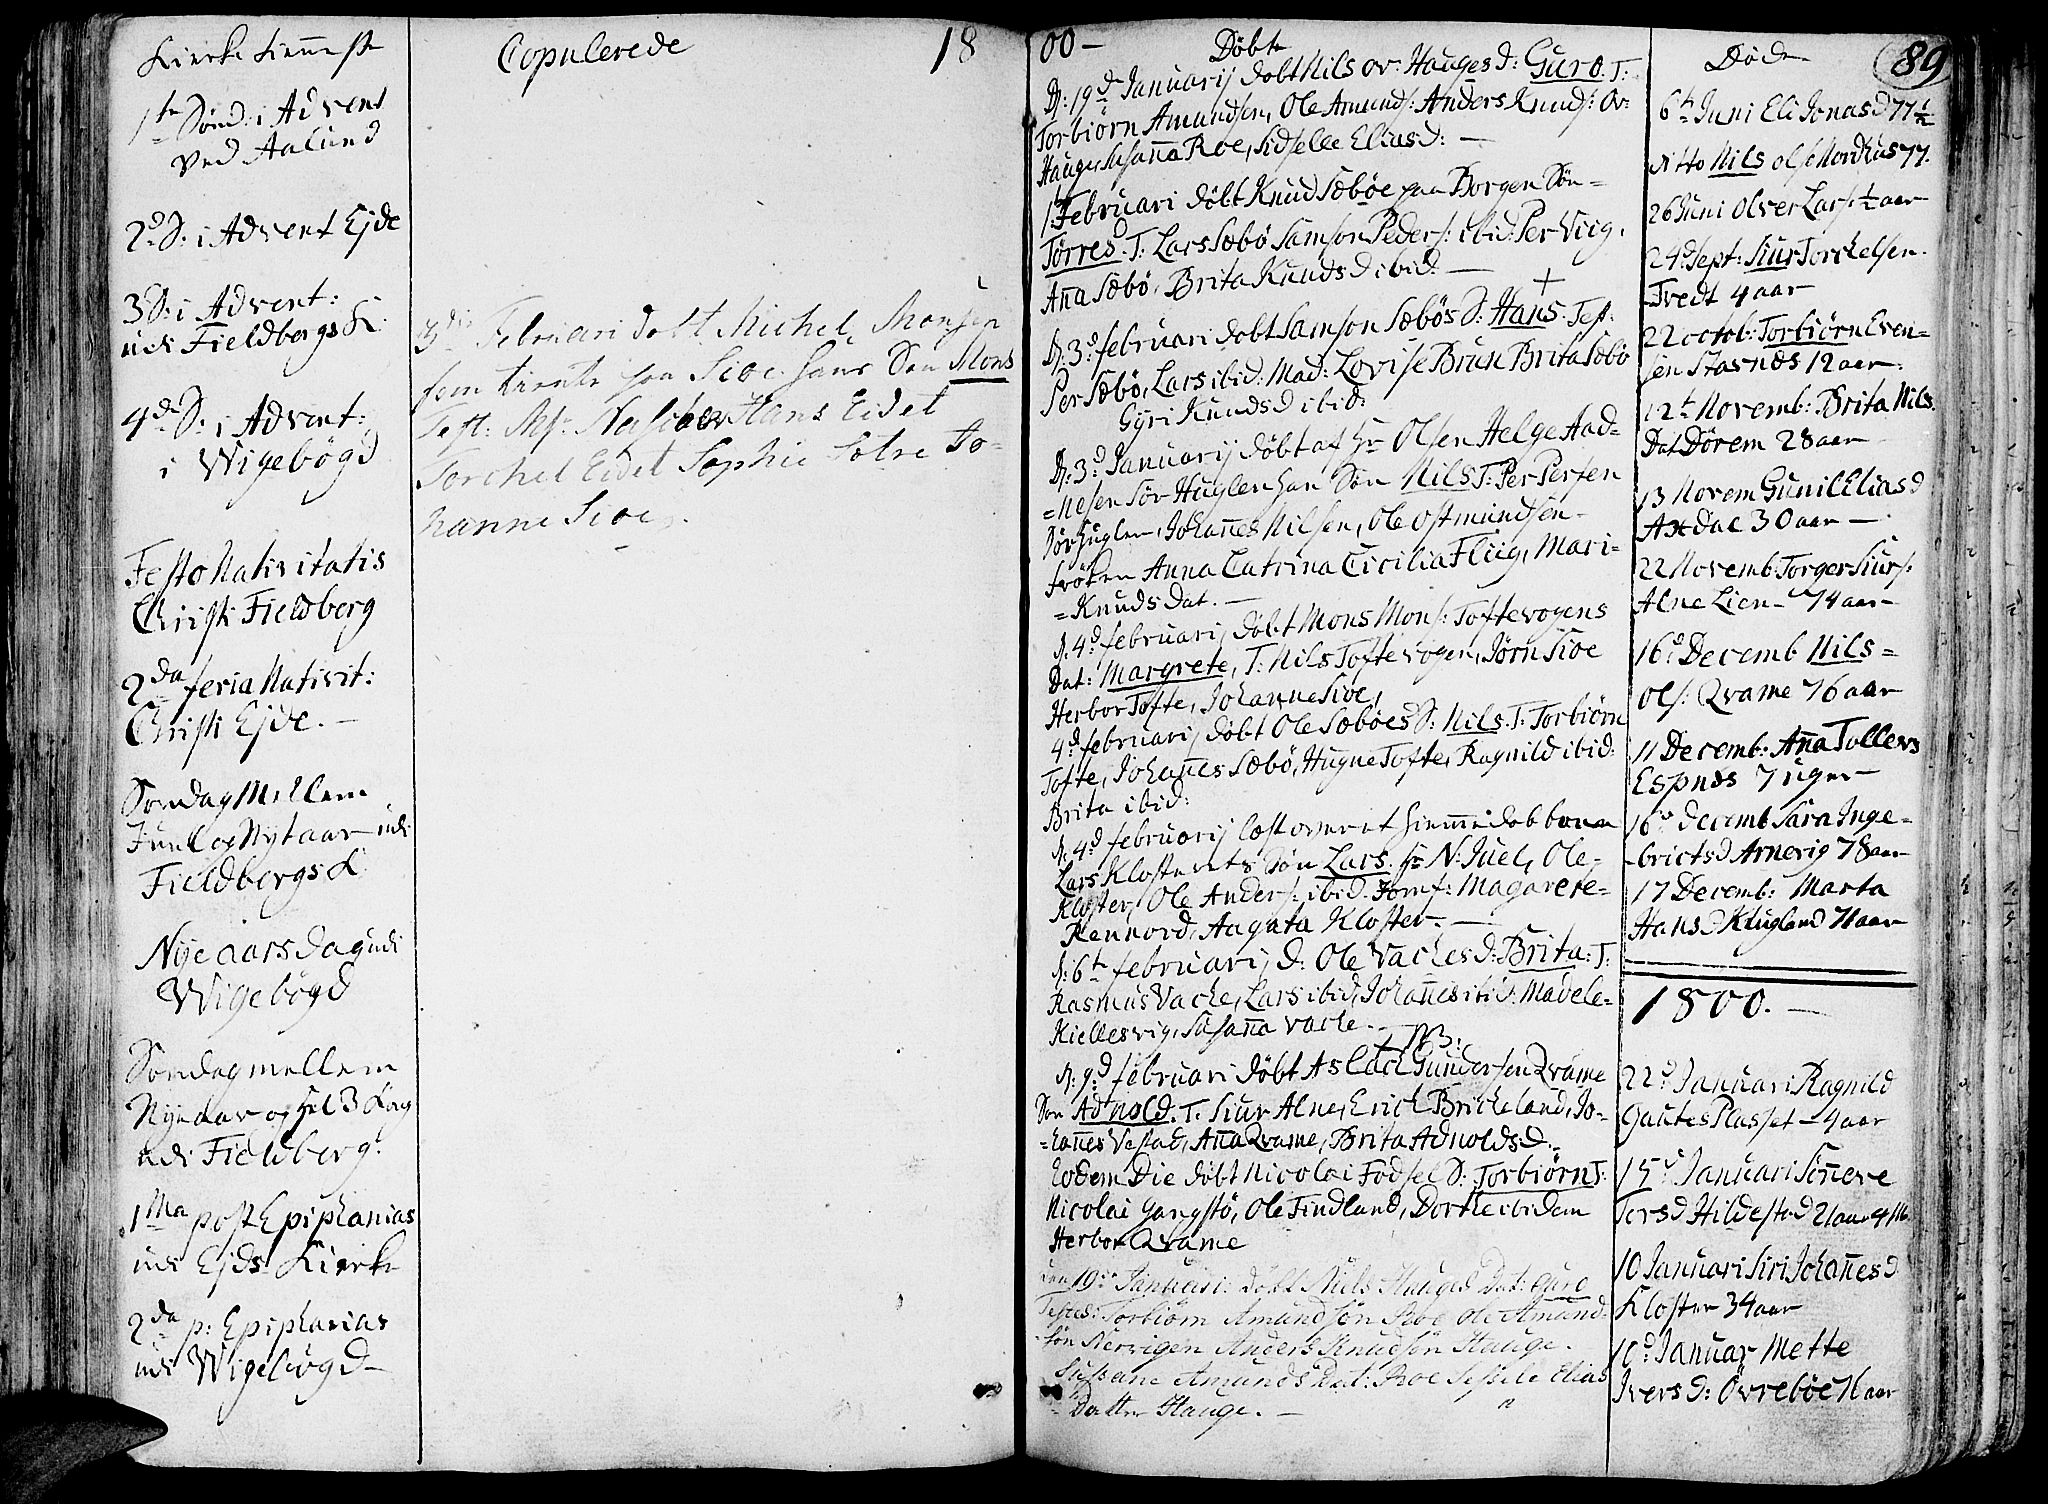 Kirke Tienneste
1te Sønd: i Advent
ved Aalund
2d S: i Advent Ejde
3 S: i Advent:
udi Fieldbergs K:
4de S: i Advent:
i Wigebögd
Festo Nativitatis
Christi Fieldberg
2da feria Nativit:
Christi Ejde. —
Søndag Mellem
Juul og Nytaar udi
Fieldbergs K:
Nye aars dag udi
Wigebögd
Søndag mellem
Nyeaar og Hel 3 Kong
udi Fieldberg:
1ma post Epiphanias
udi Ejds Kierke
2da p: Epiphanias
udi Wigebögd —
Copulerede
18
3die Februari døbt Michel Monsen
som tiente paa Sioe hans Søn Mons
Test: Hans Eidet
Torchel Eidet Sophie Sotre Jo-
hanne Sioe.
00 —
Döbte
D: 19d Januarij döbt Nils ov: Hauges d: Guro. T:
Torbiörn Amundsen, Ole Amunds: Anders Knuds: Ov:
Hauge, Susanna Roe, Sidselle Elias d: —
1 Februari döbt Knud Sæböe paa Borgen Sön =
Törres. T: Lars Sæbö Samson Peders: ibid: Per Viig,
Anna Sæbö, Brita Knudsd ibid: —
+
D: 3d februari döbt Samson Sæbös S: Hans. Test:
Per Sæbö, Lars ibid: Mad: Lovise Brun Brita Sæbö
Gyri Knudsd ibid:
D: 3d Januarij döbt af Hr Olsen Helge Aad=
=Nesen Sör Huglen han Sön Nils T: Per Persen
Sörhuglen, Johannes Nilsen, Ole Ostmundsen —
fröken Anna Catrina Cicilia Fliig, Mari=
=Knuds Dat. —
D. 4d februarij döbt Mons Mons: Toftevogens
Dat: Margrete, T: Nils Toftevogen, Jörn Sioe
Herbor Tofte, Johanne Sioe,
4d februarij döbt Ole Sæböes S: Nils. T: Torbiörn
Tofte, Johannes Sæbö, Hugne Tofte, Ragnild ibid:
Brita ibid:
D: 4d februarij læst over et hiemme döbt barn
Lars Klosterets Sön Lars. Hr N: Juel, Ole
Kloster, Ole Anders: ibid. Jomf: Magarete=
Rennord, Aagata Kloster. —
D: 6te februarij d: Ole Vaches d: Brita: T:
Rasmus Vache, Lars ibid, Johannes ibid: Madele=
Kiellesvig, Susanna Vacke. —
+ NB:
D: 9d februari döbt Aslack Gundersen Qvame
Sön Adnold. T: Siur Alne, Erich Bricheland, Jo-
=hannes Vestad, Anna Qvame, Brita Adnolds:d. —
Eodem Die döbt Nicolai Fodsel S: Torbiörn T:
Nicolai Gangstö, Ole Findland, Dorthe ibidem
Herbor Qvame
den 19de Januari: döbt Nils Hauges Dat: Guro
Testes: Torbiörn Amundsön Roe Ole Amund-
sön Nervigen Anders Knudsön Hauge.
Sussane Amunds Dat: Roe Sessele Elias
Datter Hauge. —
Döde
89
6te Juni Eli Jonasd 77 1/2
ditto Nils Ols Nordhus 77.
26 Juni Olver Lars: 1/2 aar
24d Sept: Siur Torchelsen
Tvedt 4 aar
22 octob: Torbiörn Even-
sen Stasnæs 12 aar.
12te Novemb: Brita Nils.
Dat Dörem 28 aar
13 Novem Gunil Eliasd
Axdal 30 aar —
22 Novemb: Torger Siurs:
Alne Lien — 74 aar —
16d Decemb Nils =
Ols: Qvame 76 aar
11 Decemb: Anna Tollevs
Espnæs 7 uger —
16de decemb Sara Inge=
-brictsd Arnevig 78 aar
17 Decemb: Marta
Hansd Kugland 71 aar
1800. —
22d Januari Ragnild
Gautes Plasset — 4 aar
15d Januari Sönneve
Tersd Hildestad 21 aar 4 M.
10 Januari Siri Johannesd
Kloster 34 aar
10d Januar Mette
Ivers d: Övreböe 71 aar